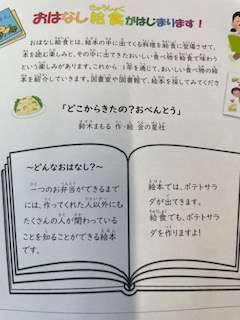 おはなし給食がはじまります！
きゅうしょく
おはなし給食とは、絵本の中に出てくる料理を給食に登場させて、
本を読む楽しみと、その中に出てきたおいしい食べ物を給食で味わう
という楽しみがあります。これから1年を通じて、おいしい食べ物の絵
本を紹介していきます。図書室や図書館で、絵本を探してみてくださ
「どこからきたの？おべんとう」
鈴木まもる 作・絵 金の星社
～どんなおはなし？～
一つのお弁当ができるまで
には、作ってくれた人以外にも
たくさんの人が関わっている
ことを知ることができる絵本
です。
絵本では、ポテトサラ
ダが出てきます。
給食でも、ポテトサラ
ダを作りますよ！